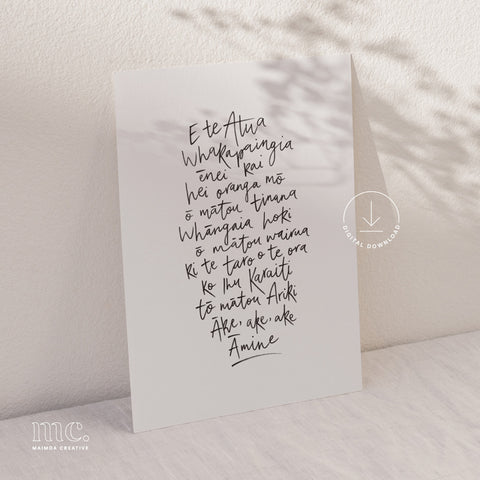 E te Atua
Whakapaingia
ēnei kai
hei oranga mō
ō mātou tinana
Whāngaia hoki
ō mātou wairua
ki te taro o te ora
ko Ihu Karaiti
tō mātou Ariki
Āke, ake, ake
Āmine
DIGITAL DOWNLOAD
mc.
MAIMOA CREATIVE